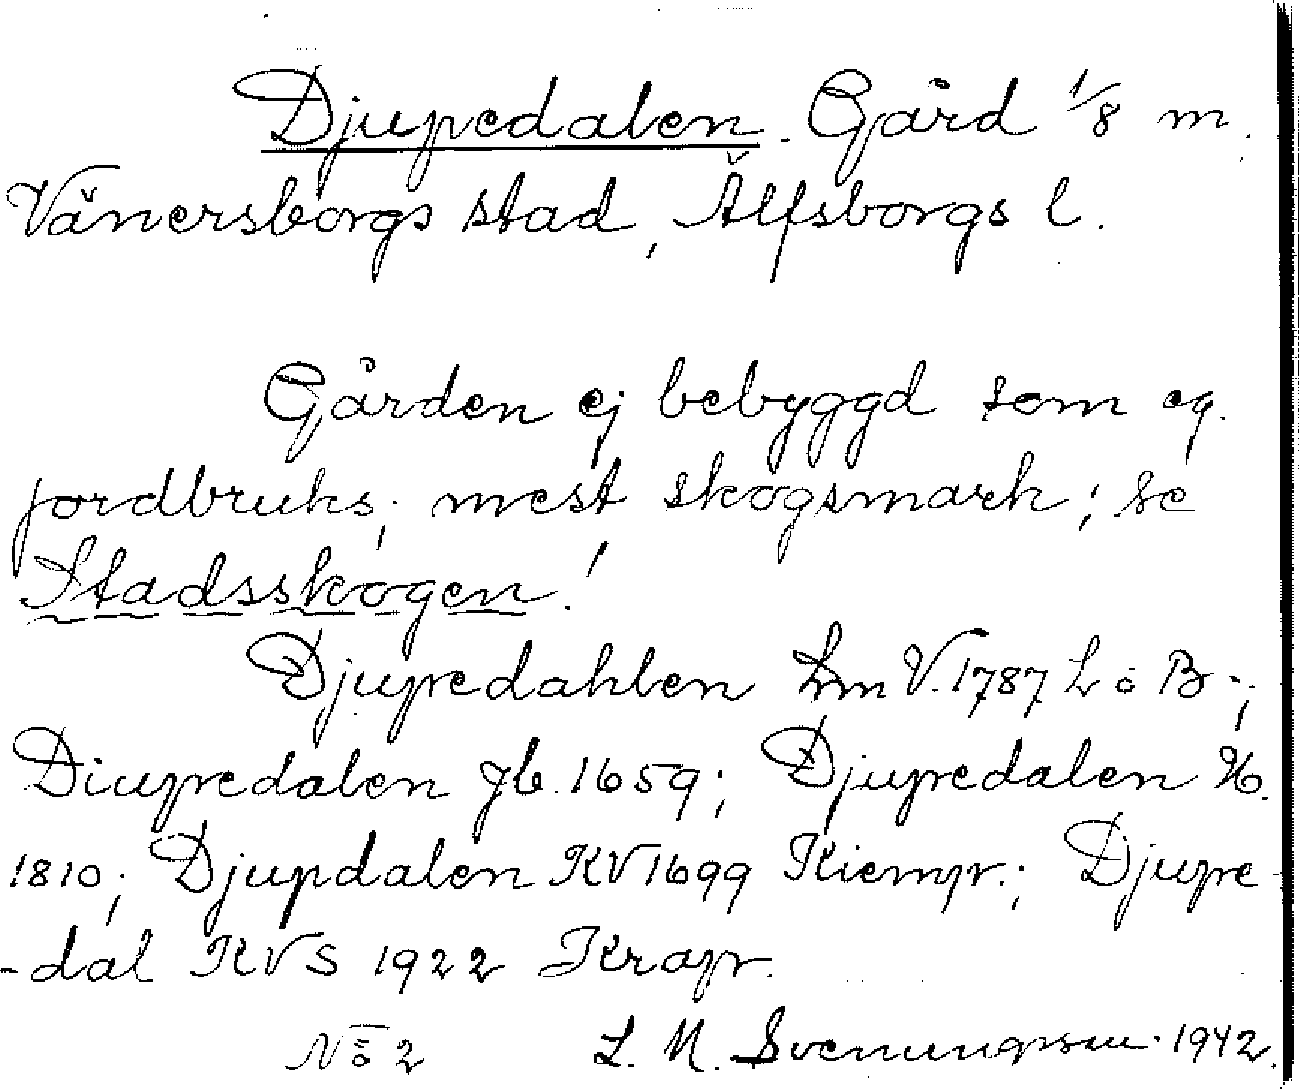 Djupedalen. Gård 1/8 m.
Vänersborgs stad, Älfsborgs l.
Gården ej bebyggd som eg.
jordbruks; mest skogsmark; se
Stadsskogen!
Djupedahlen Lm V. 1787 L ö B;
Diupedalen Jb. 1659; Djupedalen
1810; Djupdalen KV 1699 Kiempr.; Djupe
-dal KVS 1922 Krapr.
No 2 L. M. Svenungsson 1942.